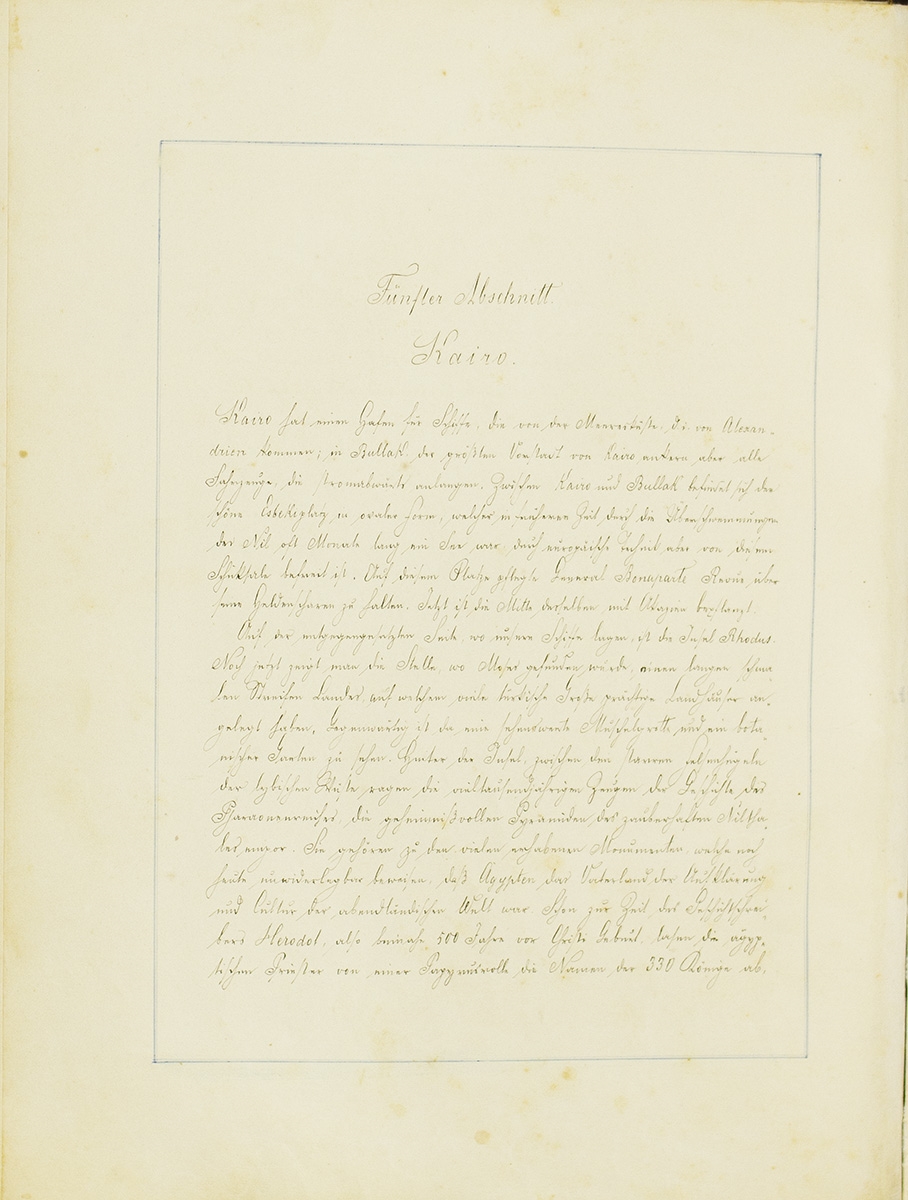 Fünfter Abschnitt.
Kairo.
Kairo hat einen Hafen für Schiffe, die von der Meeresküste, d. i. von Alexan-
drien kommen; in Bullak, der größten Vorstadt von Kairo ankern aber alle
Fahrzeuge, die stromabwärts anlangen. Zwischen Kairo und Bullak befindet sich der
schöne Esbekeplatz in ovaler Form, welcher in früherer Zeit durch die Überschwemmungen
des Nil oft Monate lang ein See war, durch europäische Technik aber von diesem
Schicksale befreit ist. Auf diesem Platze pflegte General Bonaparte Revue über
seine Heldenscharen zu halten. Jetzt ist die Mitte desselben mit Akazien bepflanzt.
Auf der entgegengesetzten Seite, wo unsere Schiffe lagen, ist die Insel Rhodus.
Noch jetzt zeigt man die Stelle, wo Moses gefunden wurde, einen langen schma-
len Streifen Landes, auf welchem viele türkische Große prächtige Landhäuser an-
gelegt haben. Gegenwärtig ist da eine sehenswerte Muschelgrotte und ein bota-
nischer Garten zu sehen. Hinter der Insel, zwischen den starren Felsenhügeln
der lybischen Wüste ragen die vieltausendjährigen Zeugen der Geschichte des
Pharaonenreiches, die geheimnißvollen Pyramiden des zauberhaften Niltha-
les empor. Sie gehören zu den vielen erhabenen Monumenten, welche noch
heute unwiderlegbar beweisen, daß Ägypten das Vaterland der Aufklärung
und Cultur der abendländischen Welt war. Schon zur Zeit des Geschichtschrei-
bers Herodot, also beinahe 500 Jahre vor Christi Geburt, lasen die ägyp-
tischen Priester von einer Papyrusrolle die Namen der 330 Könige ab,